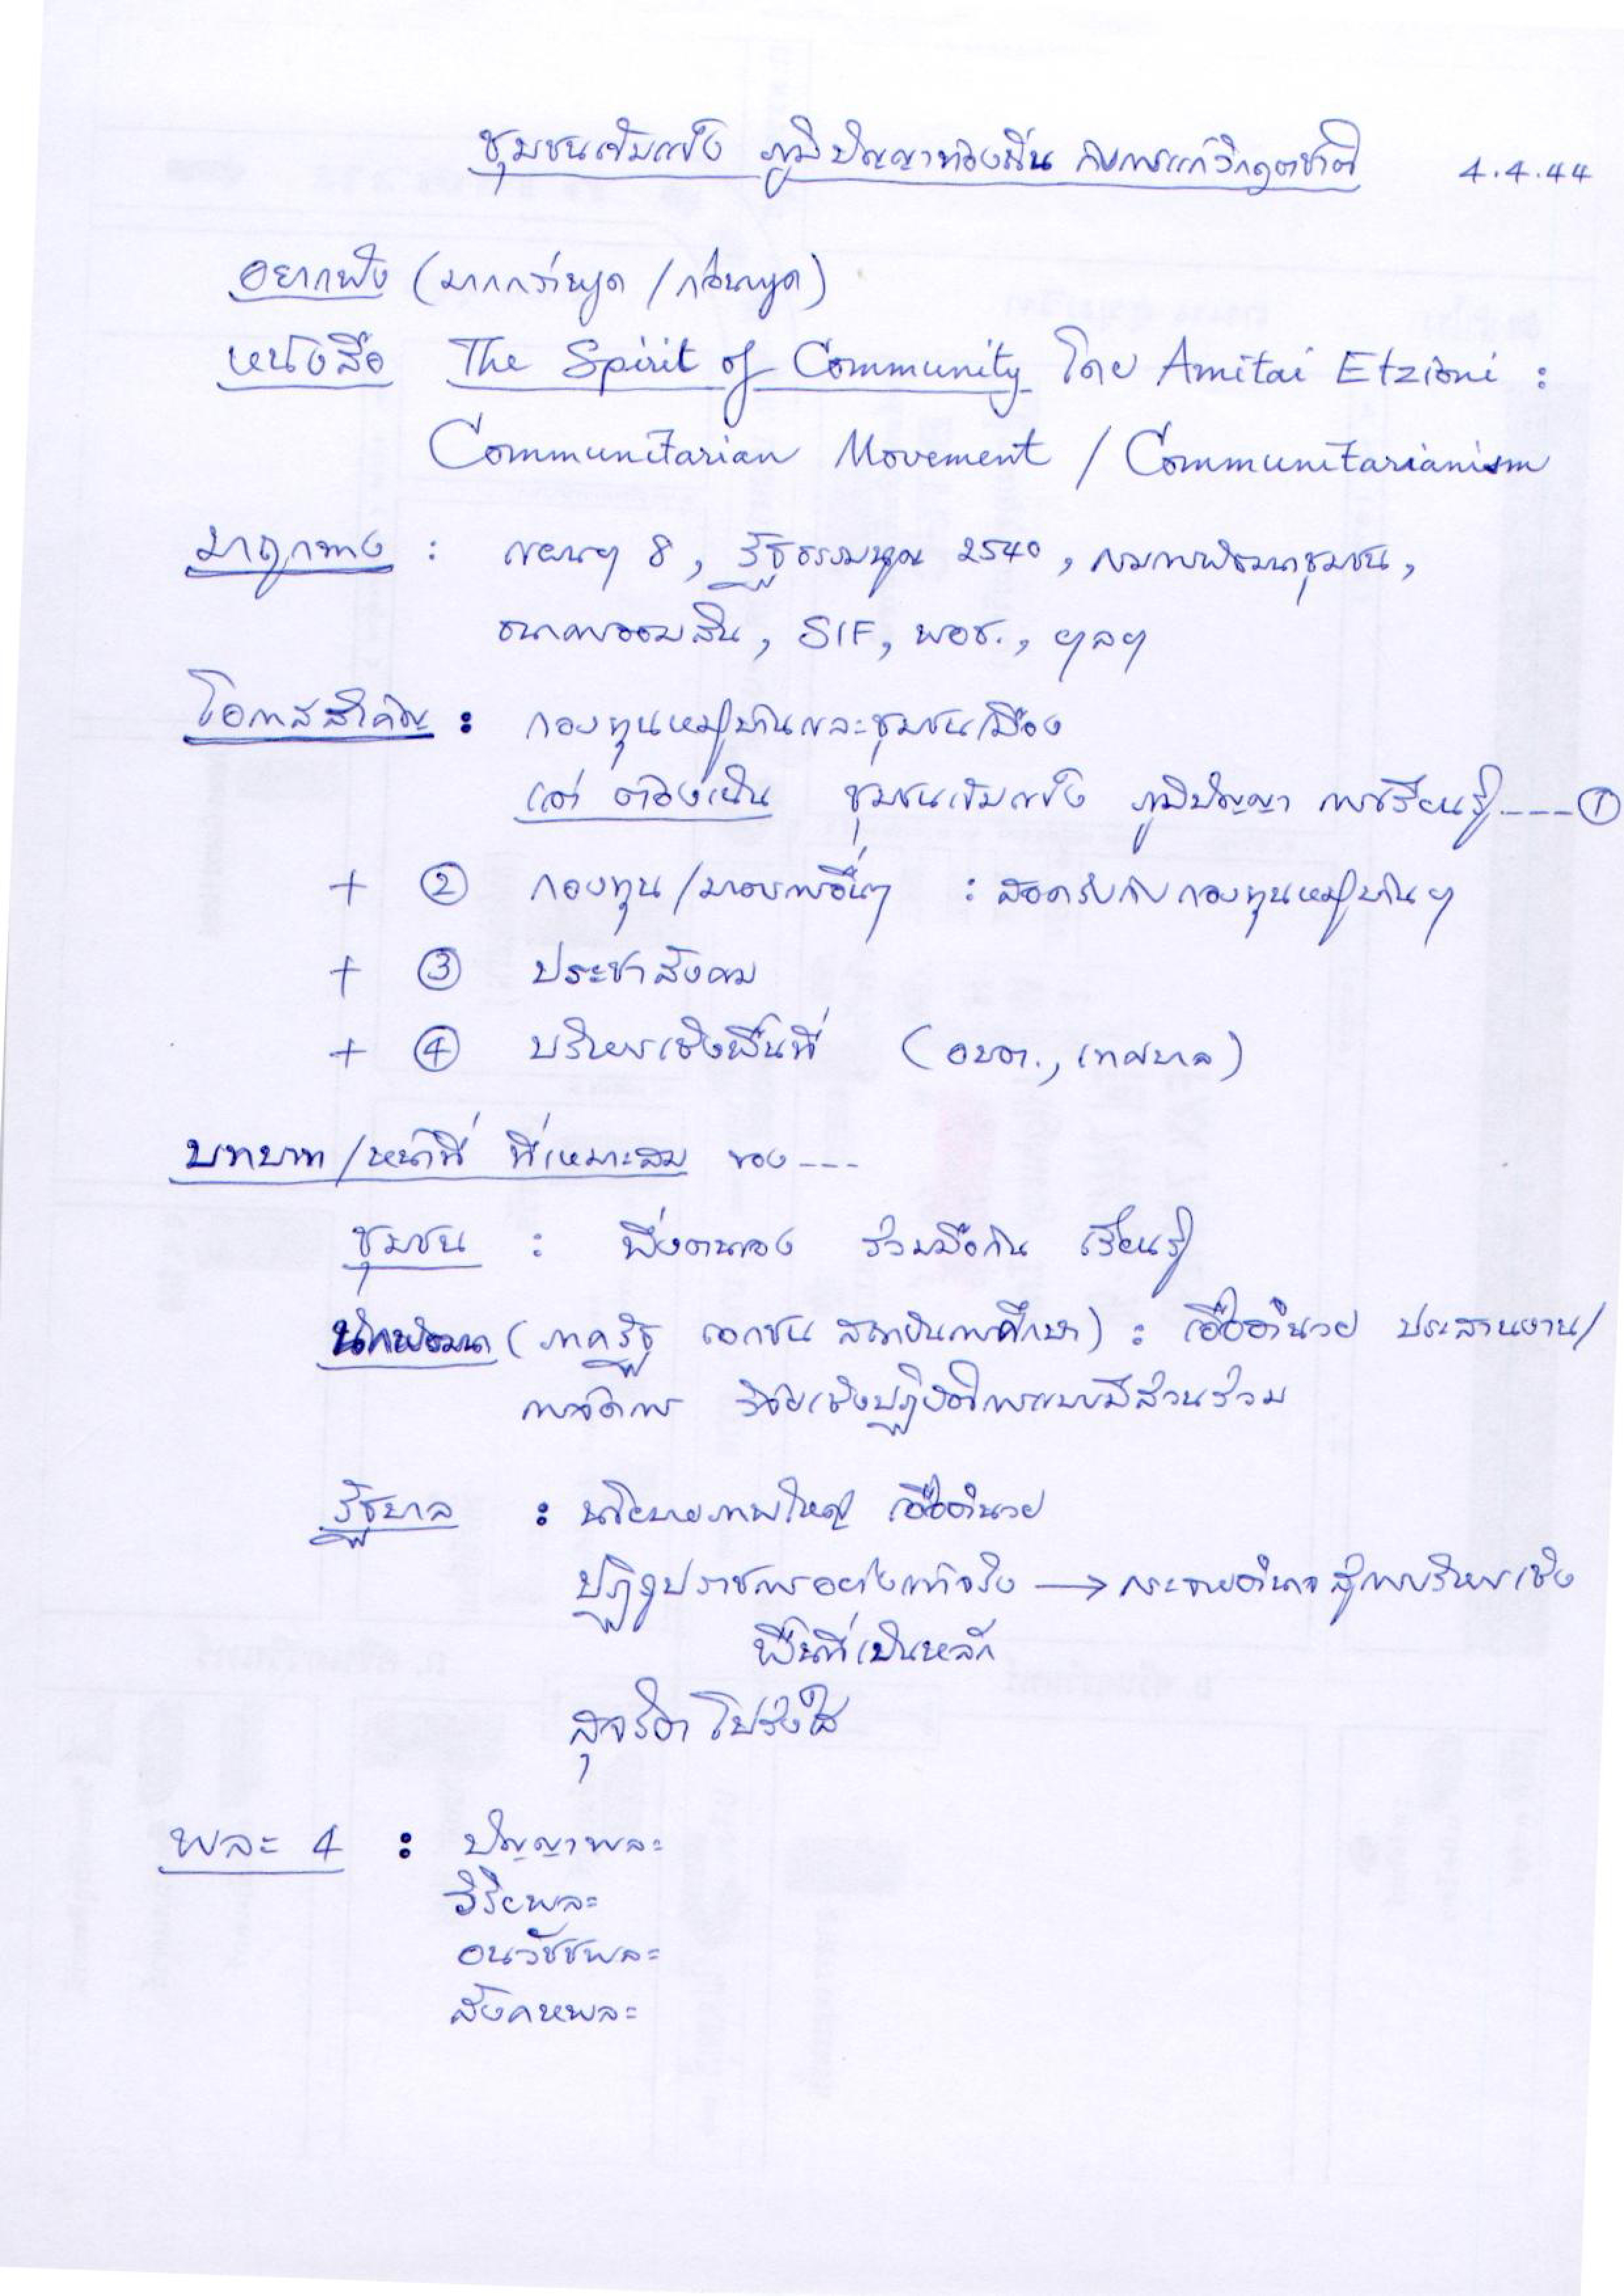 ชุมชนเข้มแข็ง ภูมิปัญญาท้องถิ่น กับการแก้วิกฤตชาติ 4.4.44
อยากฟัง (มากกว่าพูด / ก่อนพูด)
หนังสือ The Spirit of Community โดย Amitai Etzioni :
Communitarian Movement / Communitarianism
มาถูกทาง : แผนฯ 8, รัฐธรรมนูญ 2540, กรมการพัฒนาชุมชน,
ธนาคารออมสิน, SIF, พอช., ฯลฯ
โอกาสสำคัญ : กองทุนหมู่บ้านและชุมชนเมือง
แต่ ต้องเน้น ชุมชนเข้มแข็ง ภูมิปัญญา การเรียนรู้ ---- ①
+ ② กองทุน / มาตรการอื่นๆ : สอดรับกับกองทุนหมู่บ้านฯ
+ ③ ประชาสังคม
+ ④ บริหารเชิงพื้นที่ (อบต., เทศบาล)
บทบาท / หน้าที่ ที่เหมาะสม ของ ---
ชุมชน : พึ่งตนเอง ร่วมมือกัน เรียนรู้
นักพัฒนา (ภาครัฐ เอกชน สถาบันการศึกษา) : เอื้ออำนวย ประสานงาน /
การจัดการ วิจัยเชิงปฏิบัติการแบบมีส่วนร่วม
รัฐบาล : นโยบายภาพใหญ่ เอื้ออำนวย
ปฏิรูปราชการอย่างแท้จริง → กระจายอำนาจสู่การบริหารเชิง
พื้นที่เป็นหลัก
สุจริต โปร่งใส
พละ 4 : ปัญญาพละ
วิริยพละ
อนวัชชพละ
สังคหพละ